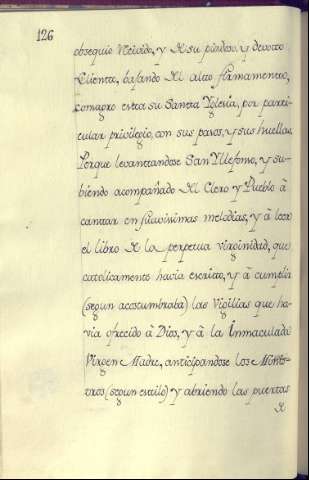 126
obsequio Nacido, y de su piadoso, y devoto
Cliente, bajando del alto firmamento,
consagro esta su Sancta Yglesia, por parti
cular privilegio, con sus pasos, y sus huellas.
Porque levanttandose San Yllefonso, y su-
biendo acompañado del Clero y Pueblo â
canttar en suavissimas melodias, y â leer
el libro de la perpetua virginidad, que
catolicamente havia escrito, y â cumplir
(segun acostumbraba) las Vigilias que ha-
via ofrecido â Dios, y â la Immaculada
Virgen Madre, anticipandose los Minis-
tros (segun estilo) y abriendo las puertas